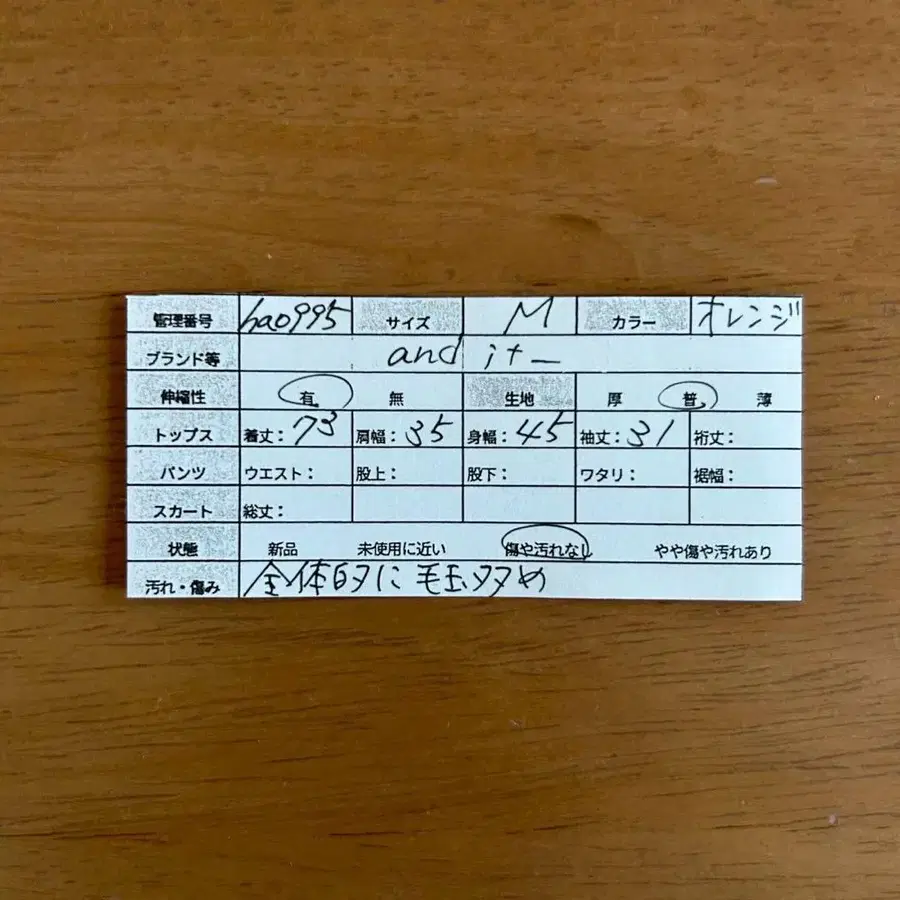 管理番号 hao995 サイズ M カラー オレンジ
ブランド等 and it_
伸縮性 有 無 生地 厚 普 薄
トップス 着丈：73 肩幅：35 身幅：45 袖丈：31 裄丈：
パンツ ウエスト： 股上： 股下： ワタリ： 裾幅：
スカート 総丈：
状態 新品 未使用に近い 傷や汚れなし やや傷や汚れあり
汚れ・傷み 全体的に毛玉多め